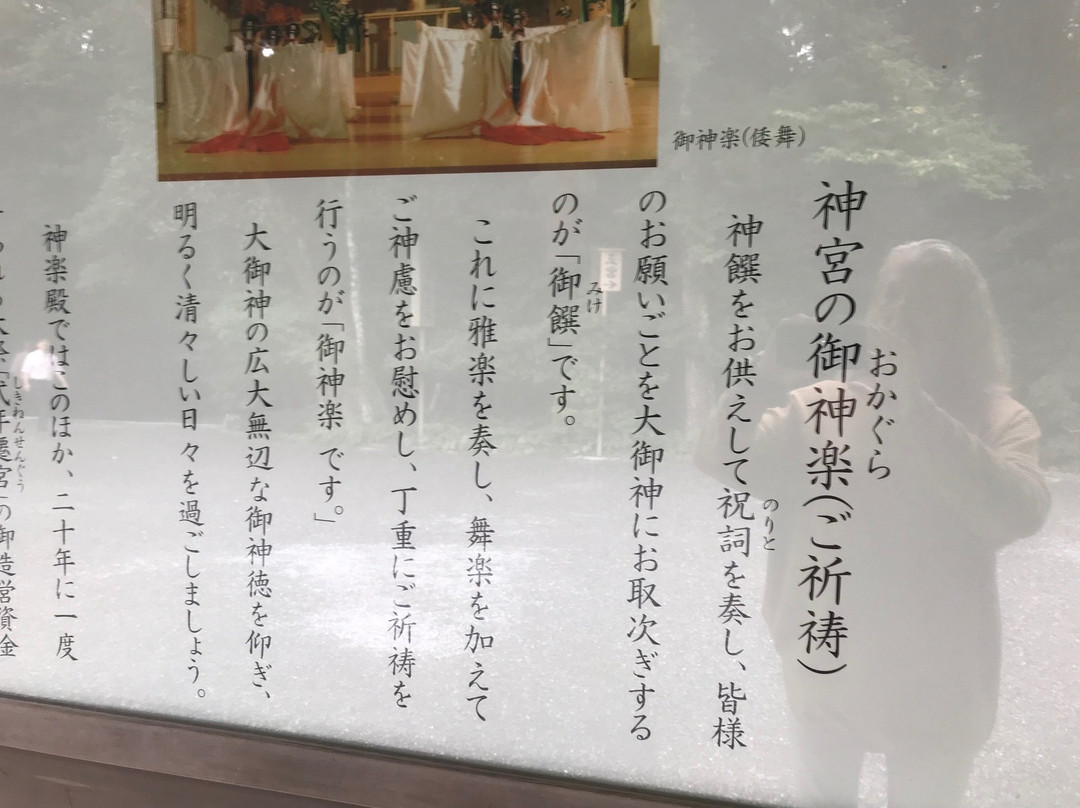 御神楽(倭舞)
神宮の御神楽(ご祈祷)
おかぐら
神饌をお供えして祝詞を奏し、皆様
のりと
のお願いごとを大御神にお取次ぎする
のが「御饌」です。
みけ
これに雅楽を奏し、舞楽を加えて
ご神慮をお慰めし、丁重にご祈祷を
行うのが「御神楽 です。」
大御神の広大無辺な御神徳を仰ぎ、
明るく清々しい日々を過ごしましょう。
神楽殿ではこのほか、二十年に一度
式年遷宮」の御造営資金
しきねんせんぐう